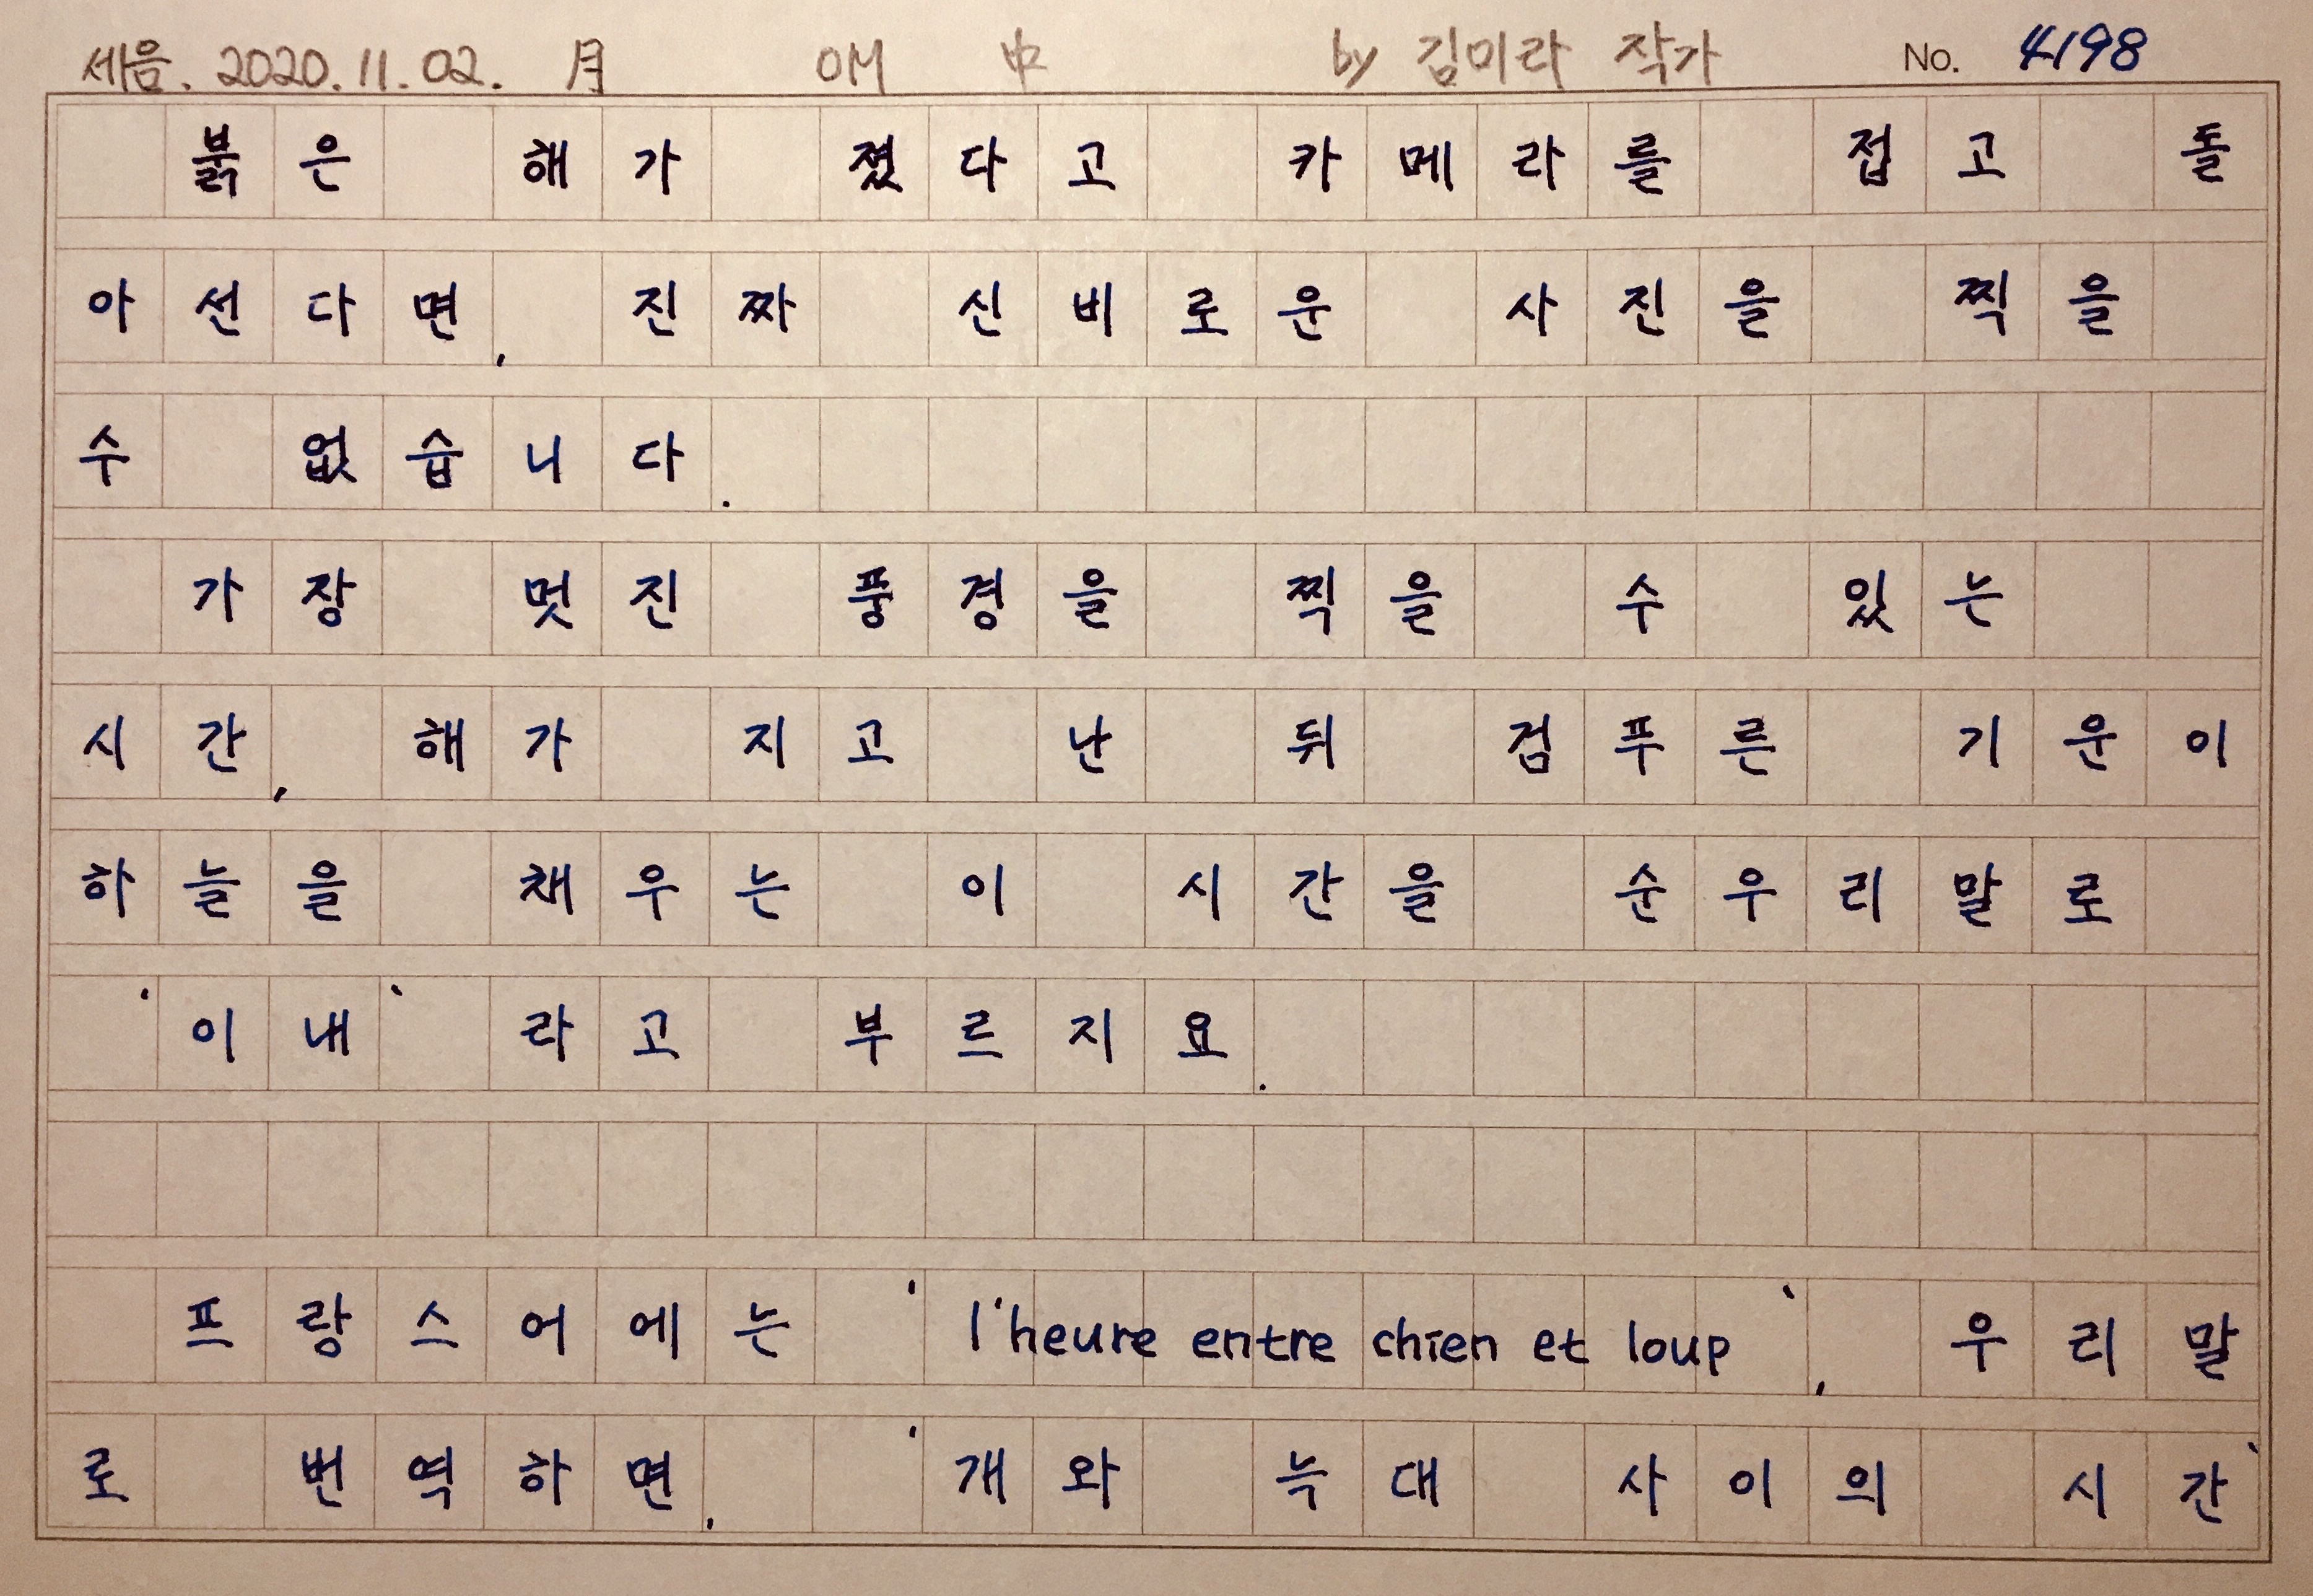 세음. 2020.11.02. 月 OM 中 by 김미라 작가 No. 4198
붉은 해가 졌다고 카메라를 접고 돌
아선다면, 진짜 신비로운 사진을 찍을
수 없습니다.
가장 멋진 풍경을 찍을 수 있는
시간, 해가 지고 난 뒤 검푸른 기운이
하늘을 채우는 이 시간을 순우리말로
'이내' 라고 부르지요.
프랑스어에는 'l'heure entre chien et loup', 우리말
로 번역하면, '개와 늑대 사이의 시간'